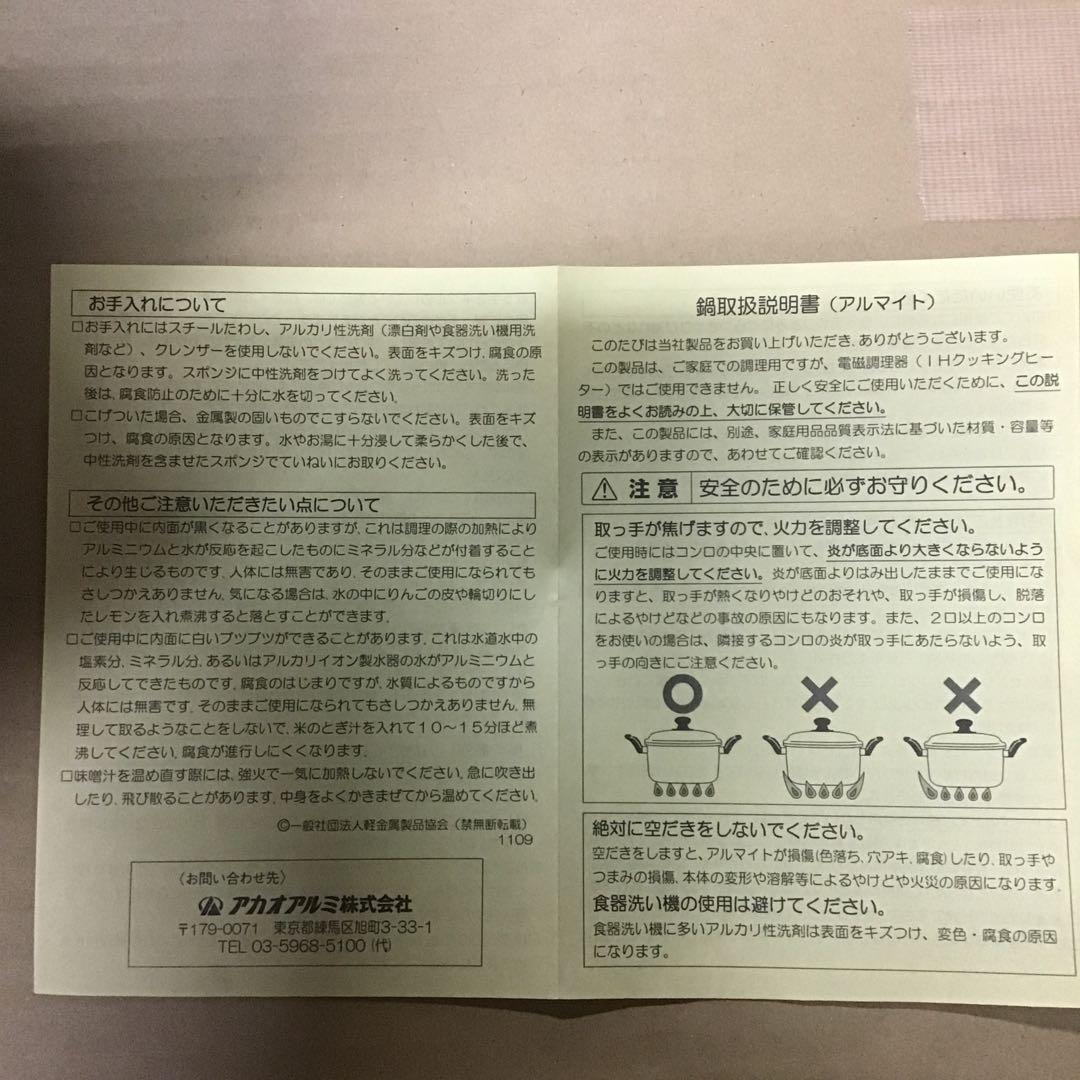 お手入れについて
□お手入れにはスチールたわし、アルカリ性洗剤（漂白剤や食器洗い機用洗
剤など）、クレンザーを使用しないでください。表面をキズつけ、腐食の原
因となります。スポンジに中性洗剤をつけてよく洗ってください。洗った
後は、腐食防止のために十分に水を切ってください。
□こげついた場合、金属製の固いものでこすらないでください。表面をキズ
つけ、腐食の原因となります。水やお湯に十分浸して柔らかくした後で、
中性洗剤を含ませたスポンジでていねいにお取りください。
その他ご注意いただきたい点について
□ご使用中に内面が黒くなることがありますが、これは調理の際の加熱により
アルミニウムと水が反応を起こしたものにミネラル分などが付着すること
により生じるものです。人体には無害であり、そのままご使用になられても
さしつかえありません。気になる場合は、水の中にりんごの皮や輪切りにし
たレモンを入れ煮沸すると落とすことができます。
□ご使用中に内面に白いブツブツができることがあります。これは水道水中の
塩素分、ミネラル分、あるいはアルカリイオン製水器の水がアルミニウムと
反応してできたものです。腐食のはじまりですが、水質によるものですから
人体には無害です。そのままご使用になられてもさしつかえありません。無
理して取るようなことをしないで、米のとぎ汁を入れて１０〜１５分ほど煮
沸してください。腐食が進行しにくくなります。
□味噌汁を温め直す際には、強火で一気に加熱しないでください。急に吹き出
したり、飛び散ることがあります。中身をよくかきまぜてから温めてください。
©一般社団法人軽金属製品協会（禁無断転載）
1109
〈お問い合わせ先〉
アカオアルミ株式会社
〒179-0071 東京都練馬区旭町3-33-1
TEL 03-5968-5100（代）
鍋取扱説明書（アルマイト）
このたびは当社製品をお買い上げいただき、ありがとうございます。
この製品は、ご家庭での調理用ですが、電磁調理器（ＩＨクッキングヒー
ター）ではご使用できません。正しく安全にご使用いただくために、この説
明書をよくお読みの上、大切に保管してください。
また、この製品には、別途、家庭用品品質表示法に基づいた材質・容量等
の表示がありますので、あわせてご確認ください。
⚠ 注意 安全のために必ずお守りください。
取っ手が焦げますので、火力を調整してください。
ご使用時にはコンロの中央に置いて、炎が底面より大きくならないよう
に火力を調整してください。炎が底面よりはみ出したままでご使用にな
りますと、取っ手が熱くなりやけどのおそれや、取っ手が損傷し、脱落
によるやけどなどの事故の原因にもなります。また、２口以上のコンロ
をお使いの場合は、隣接するコンロの炎が取っ手にあたらないよう、取
っ手の向きにご注意ください。
絶対に空だきをしないでください。
空だきをしますと、アルマイトが損傷(色落ち、穴アキ、腐食)したり、取っ手や
つまみの損傷、本体の変形や溶解等によるやけどや火災の原因になります。
食器洗い機の使用は避けてください。
食器洗い機に多いアルカリ性洗剤は表面をキズつけ、変色・腐食の原因
になります。